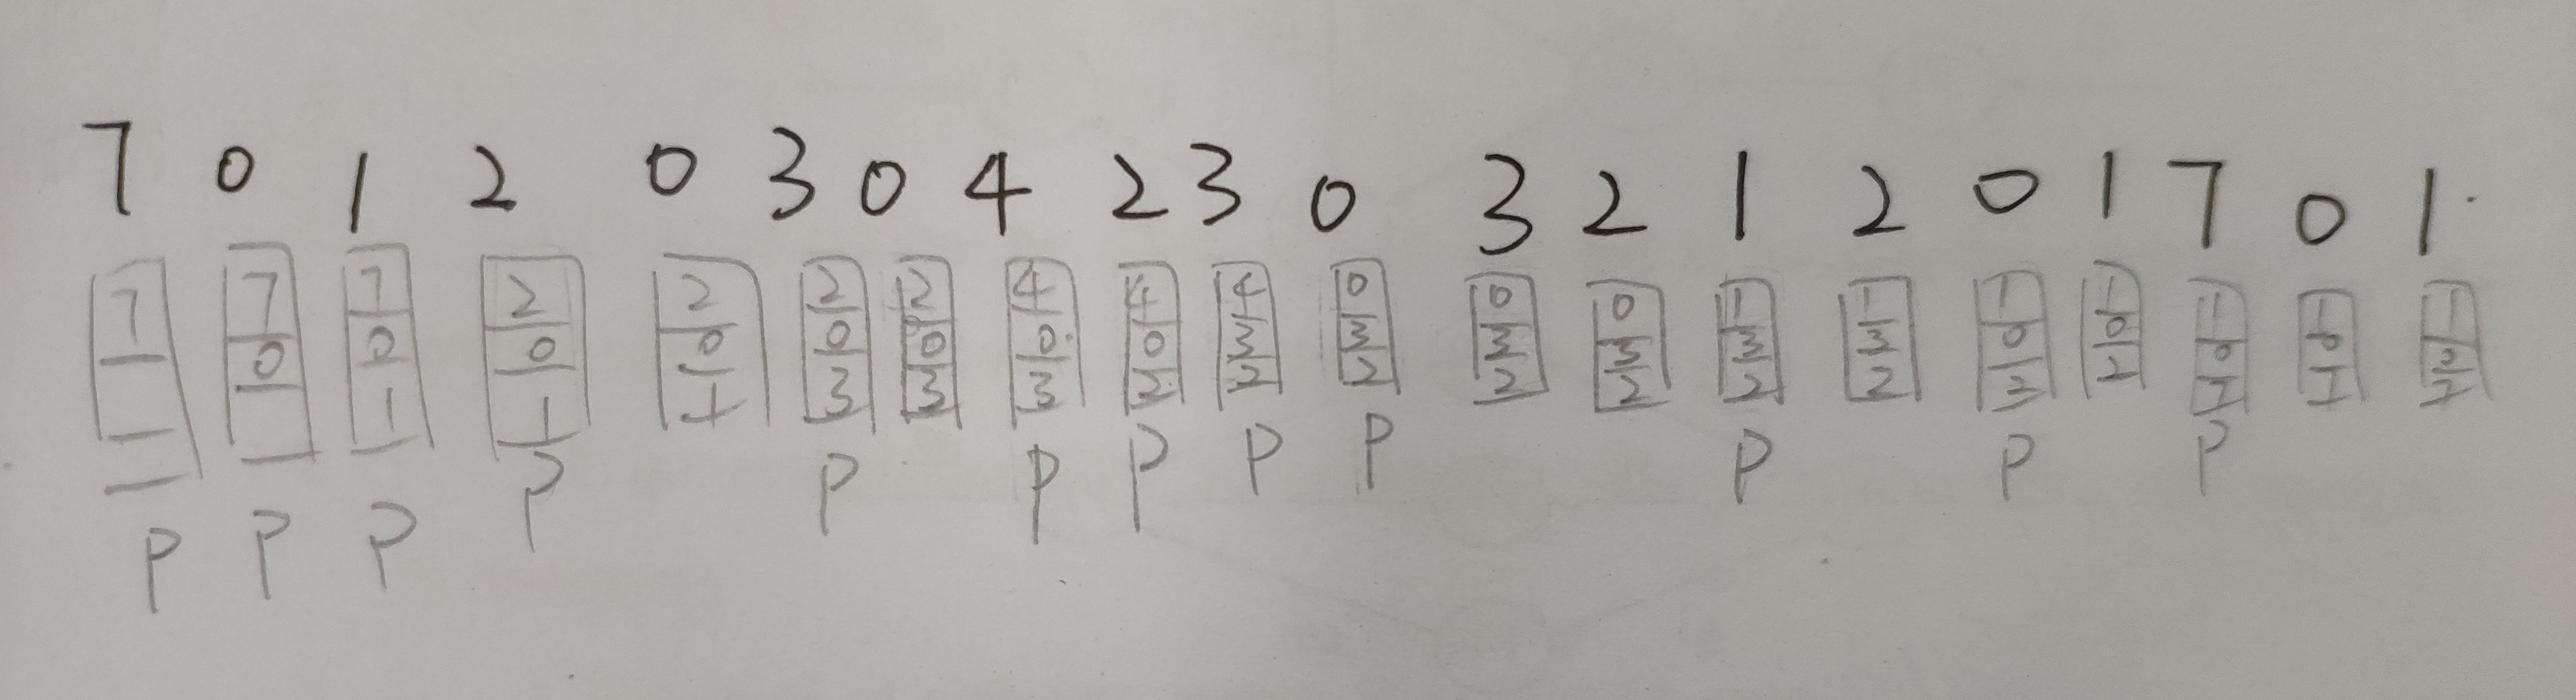 7 0 1 2 0 3 0 4 2 3 0 3 2 1 2 0 1 7 0 1
7 7 7 2 2 2 2 4 4 4 0 0 0 1 1 1 1 1 1 1
0 0 0 0 0 0 0 0 3 3 3 3 3 3 0 0 0 0 0
1 1 1 3 3 3 2 2 2 2 2 2 2 2 2 7 7 7
P P P P P P P P P P P P